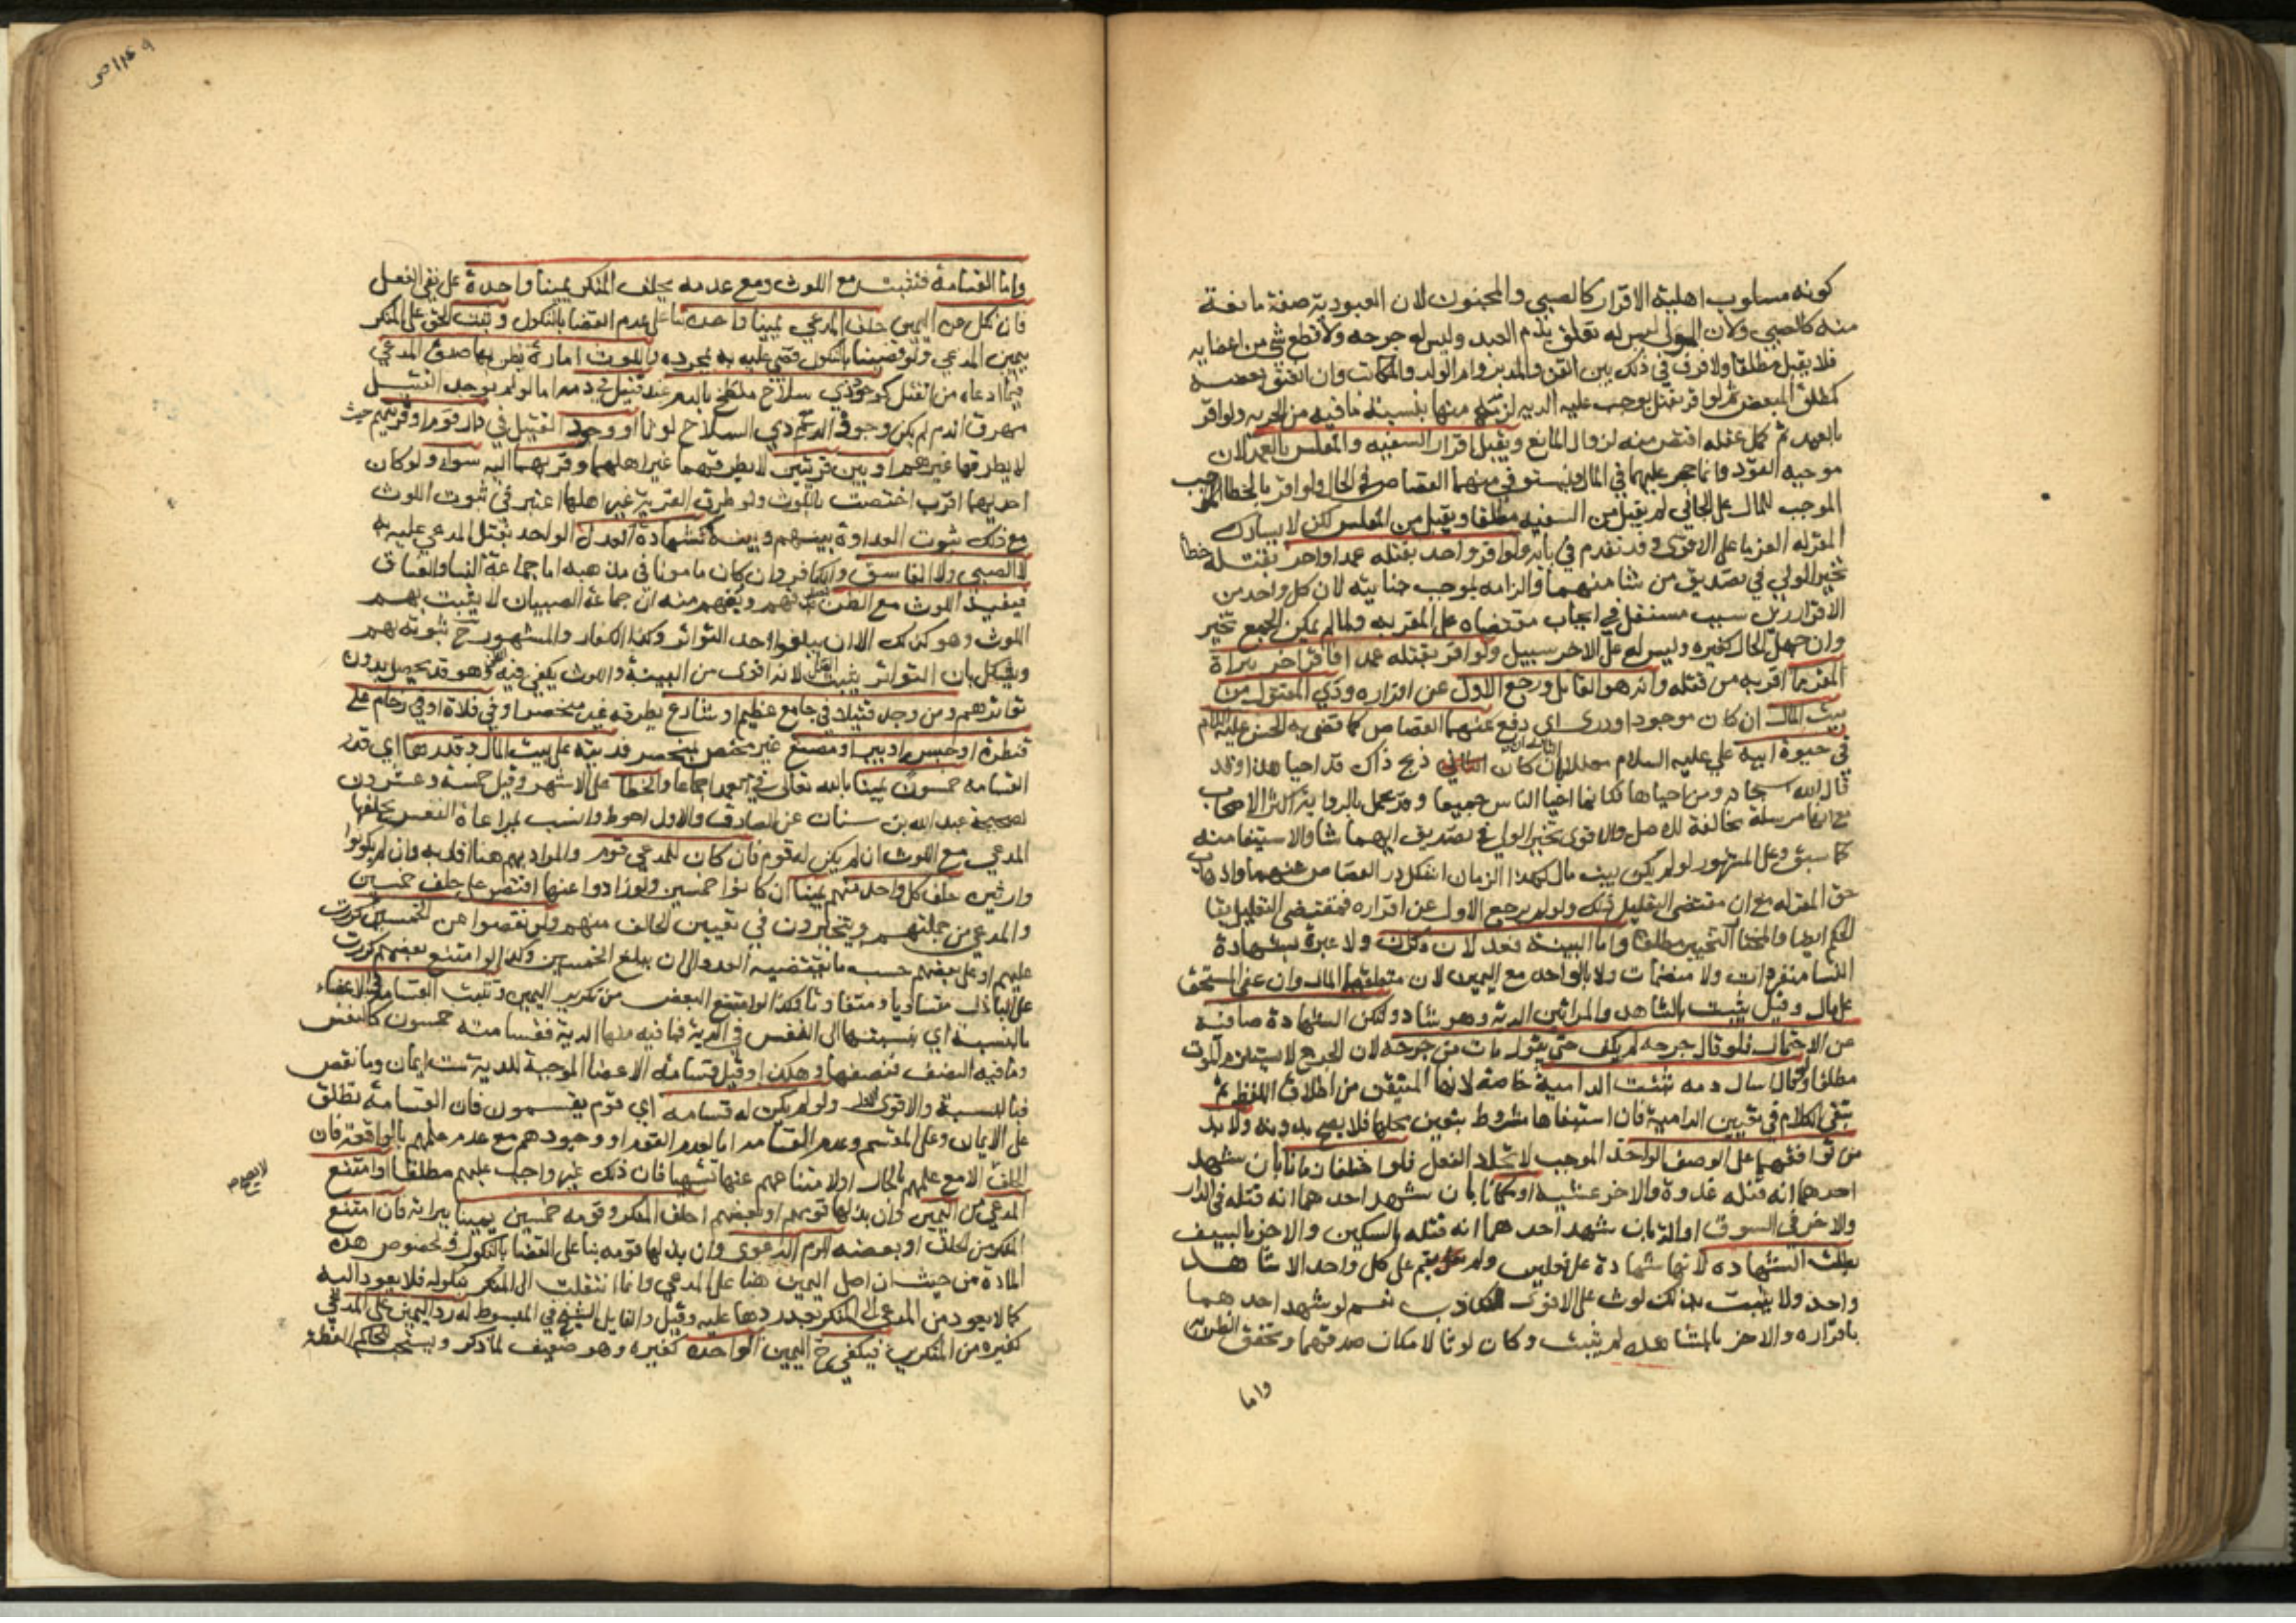 كونه مسلوب اهلية الاقرار كالصبي والمجنون لان العبودية صفة مانعة
منه كالصبي ولان المولى ليس له تعلق بدم العبد وليس له جرحه ولا قطع شي من اعضايه
فلا يقبل مطلقا ولا فرق في ذلك بين القن والمدبر وام الولد والمكاتب وان انعتق بعضه
كمطلق المبعض ثم لو اقر بقتل يوجب عليه الدية لزمه منها بنسبة ما فيه من الحرية ولو اقر
بالعمد ثم كمل عتقه اقتص منه لزوال المانع ويقبل اقرار السفيه والمفلس بالعمد لان
موجبه القود وانما حجر عليهما في المال فيستوفى منهما القصاص في الحال ولو اقر بالخطا
الموجب للمال على الجاني لم يقبل من السفيه مطلقا ويقبل من المفلس لكن لا يشارك
المقر له الغرما على الاقوى وقد تقدم في بابه ولو اقر واحد بقتله عمدا واخر بقتله خطا
تخير الولي في تصديق من شا منهما والزامه بموجب جنايته لان كل واحد من
الاقرارين سبب مستقل في ايجاب مقتضاه على المقر به ولما لم يمكن الجمع تخير
وان جهل الحال كغيره وليس له على الاخر سبيل ولو اقر بقتله عمدا فاقر اخر ببراة
المقر مما اقر به من قتله وانه هو القاتل ورجع الاول عن اقراره ودي المقتول من
بيت المال ان كان موجودا ودرى اي دفع عنهما القصاص كما قضى به الحسن عليه السلام
في حيوة ابيه علي عليه السلام معللا بان كان ذبح ذاك فقد احيا هذا وقد
قال الله سبحانه ومن احياها فكانما احيا الناس جميعا وقد عمل بالرواية اكثر الاصحاب
مع انها مرسلة مخالفة للاصل والاقوى تخير الولي في تصديق ايهما شا والاستيفا منه
كما سبق وعلى المشهور لو لم يكن بيت مال كهذا الزمان اشكل درء القصاص عنهما واذهاب
حق المقر له مع ان مقتضى التعليل ذلك ولو لم يرجع الاول عن اقراره فمقتضى التعليل بقا
الحكم ايضا والمختار التخيير مطلقا واما البينة فعدلان ذكران ولا عبرة بشهادة
النسا منفردات ولا منضمات ولا بالواحد مع اليمين لان متعلقهما المال وان عفى المستحق
على مال وقيل يثبت بالشاهد والمراتين الدية وهو شاذ ولتكن الشهادة صافية
عن الاحتمال فلو قال جرحه لم يكف حتى يقول مات من جرحه لان الجرح لا يستلزم الموت
مطلقا ولو قال اسال دمه تثبت الدامية خاصة لانها المتيقن من اطلاق اللفظ ثم
يبقى الكلام في تعيين الدامية فان استيفاها مشروط بتعيين محلها فلا يصح بدونه ولا بد
من توافقهما على الوصف الواحد الموجب لاتحاد الفعل فلو اختلفا زمانا بان شهد
احدهما انه قتله غدوة والاخر عشية او مكانا بان شهد احدهما انه قتله في الدار
والاخر في السوق او الة بان شهد احدهما انه قتله بالسكين والاخر بالسيف
بطلت الشهاده لانها شهادة على فعلين ولم يقم على كل واحد الا شاهد
واحد ولا يثبت بذلك لوث على الاقوى للتكاذب نعم لو شهد احدهما
باقراره والاخر بالمشاهده لم يثبت وكان لوثا لامكان صدقهما وتحقق الظن به
واما
واما القسامة فتثبت مع اللوث ومع عدمه يحلف المنكر يمينا واحدة على نفي الفعل
فان نكل عن اليمين حلف المدعي يمينا واحدة بنا على عدم القضا بالنكول وثبت الحق على المنكر
بيمين المدعي ولو قضينا بالنكول قضي عليه به بمجرده واللوث امارة يظن بها صدق المدعي
فيما ادعاه من القتل كوجود ذي سلاح ملطخ بالدم عند قتيل في دمه اما لو لم يوجد القتيل
مهرق الدم لم يكن وجود الدم مع ذي السلاح لوثا او وجود القتيل في دار قوم او قريتهم حيث
لا يطرقها غيرهم او بين قريتين لا يطرقهما غير اهلهما وقربهما اليه سواء ولو كان
احديهما اقرب اختصت باللوث ولو طرق القرية غير اهلها اعتبر في ثبوت اللوث
مع ذلك ثبوت العداوة بينهم وبينه كشهادة العدل الواحد بقتل المدعي عليه به
لا الصبي ولا الفاسق والكافر وان كان مامونا في مذهبه اما جماعة النسا والفساق
فيفيد اللوث مع الظن ويفهم منه ان جماعة الصبيان لا يثبت بهم
اللوث وهو كذلك الا ان يبلغوا حد التواتر وكذا الكفار والمشهور ح ثبوته بهم
ويشكل بان التواتر يثبت لانه اقوى من البينة واللوث يكفي فيه وهو قد يحصل بدون
تواترهم ومن وجد قتيلا في جامع عظيم او شارع يطرقه غير منحصر او في فلاة او في زحام على
قنطرة او جسر او بير او مصنع غير مختص بمنحصر فديته على بيت المال وقدرها اي قدر
القسامه خمسون يمينا بالله تعالى في العمد اجماعا والخطا على الاشهر وقيل خمسة وعشرون
لصحيحة عبد الله بن سنان عن الصادق والاول احوط وانسب بمراعاة النفس يحلفها
المدعي مع اللوث ان لم يكن له قوم فان كان للمدعي قوم والمراد بهم هنا اقاربه وان لم يكونوا
وارثين حلف كل واحد منهم يمينا ان كانوا خمسين ولو زادوا عنها اقتصر على حلف خمسين
والمدعي من جملتهم ويتخيرون في تعيين الحالف منهم ولو نقصوا عن الخمسين كررت
عليهم او على بعضهم حسب ما يقتضيه العدد الى ان يبلغ الخمسين وكذا لو امتنع بعضهم كررت
على الباذل متساويا ومتفاوتا وكذا لو امتنع البعض من تكرير اليمين وتثبت القسامة في الاعضاء
بالنسبة اي بنسبتها الى النفس في الدية فما فيه منها الدية فقسامته خمسون كالنفس
وما فيه النصف فنصفها وهكذا وقيل قسامة الاعضا الموجبة للدية ست ايمان وما نقص
فبالنسبة والاقوى الاول ولو لم يكن له قسامه اي قوم يقسمون فان القسامة تطلق
على الايمان وعلى المقسم وعدم القسامة اما لعدم القوم او وجودهم مع عدم علمهم بالواقعة فان
الحلف الا مع علمهم بالحال او لامتناعهم عنها تشهيا فان ذلك غير واجب عليهم مطلقا او امتنع
لا يصح صح
المدعي من اليمين وان بذلها قومه او بعضهم احلف المنكر وقومه خمسين يمينا ببراته فان امتنع
المنكر من الحلف او بعضه الزم الدعوى وان بذلها قومه بنا على القضا بالنكول او بخصوص هذه
المادة من حيث ان اصل اليمين هنا على المدعي وانما انتقلت الى المنكر بنكوله فلا يعود اليه
كما لا يعود من المدعي الى المنكر بعد ردها عليه وقيل والقايل الشيخ في المبسوط له رد اليمين على المدعي
كغيره من المنكرين فيكفي ح اليمين الواحده كغيره وهو ضعيف لما ذكر ويستحب للحاكم العظة